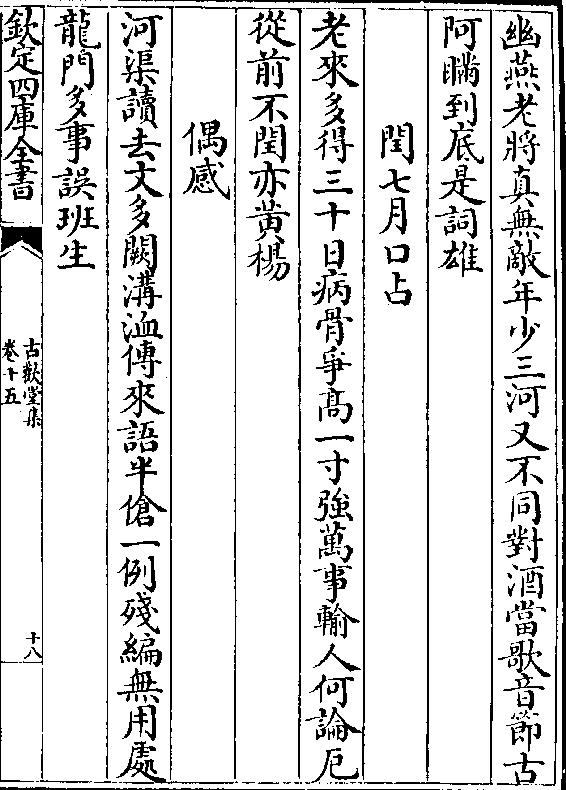 幽燕老將真無敵年少三河又不同對酒當歌音節古
阿瞞到底是詞雄
閏七月口占
老來多得三十日病骨爭髙一寸強萬事輸人何論厄
從前不閏亦黃楊
偶感
河渠讀去文多闕溝洫傳來語半傖一例殘編無用處
龍門多事誤班生
欽定四庫全書
古歡堂集
卷十五
十八